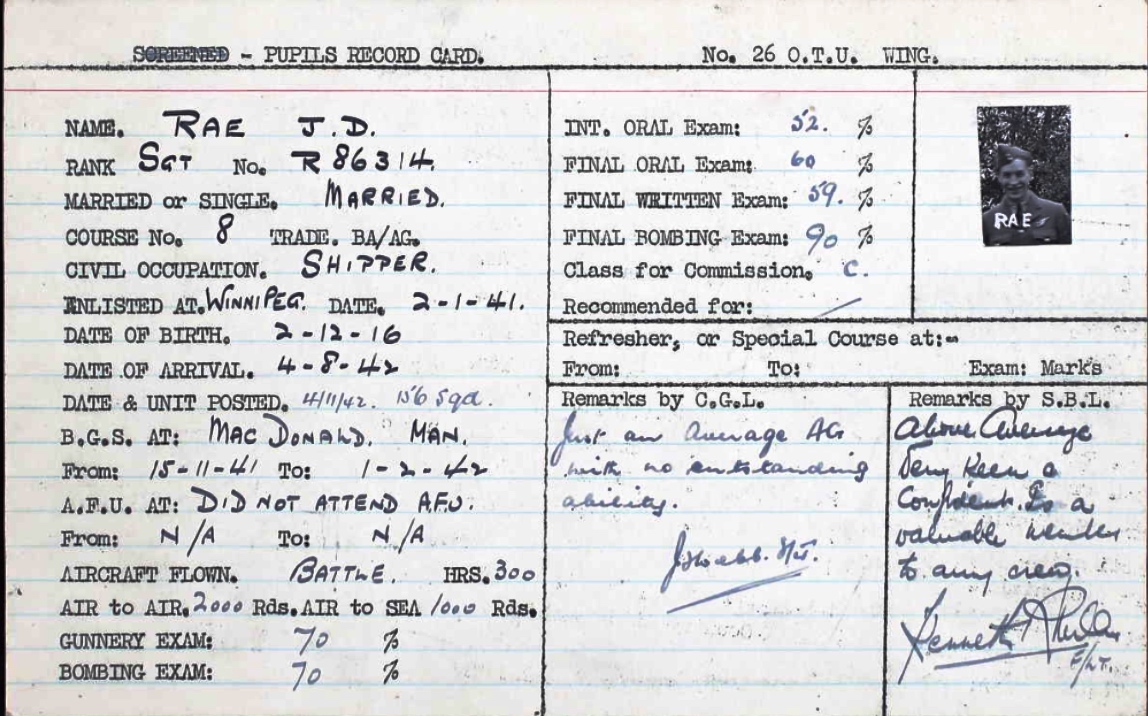 SCREENED - PUPILS RECORD CARD. No. 26 O.T.U. WING.
NAME. RAE J.D.
RANK SGT No. R 86314.
MARRIED or SINGLE. MARRIED.
COURSE No. 8 TRADE. BA/AG.
CIVIL OCCUPATION. SHIPPER.
ENLISTED AT. WINNIPEG. DATE. 2-1-41.
DATE OF BIRTH. 2-12-16
DATE OF ARRIVAL. 4-8-42
DATE & UNIT POSTED. 4/11/42. 156 Sqd.
B.G.S. AT: MAC DONALD. MAN.
From: 15-11-41 To: 1-2-42
A.F.U. AT: DID NOT ATTEND A.F.U.
From: N/A To: N/A
AIRCRAFT FLOWN. BATTLE. HRS. 300
AIR to AIR. 2000 Rds. AIR to SEA 1000 Rds.
GUNNERY EXAM: 70 %
BOMBING EXAM: 70 %
INT. ORAL Exam: 52. %
FINAL ORAL Exam: 60 %
FINAL WRITTEN Exam: 59. %
FINAL BOMBING Exam: 90 %
Class for Commission. C.
Recommended for: /
RAE
Refresher, or Special Course at:-
From: To: Exam: Marks
Remarks by C.G.L.
Just an Average AG
with no outstanding
ability.
Remarks by S.B.L.
Above Average
Very keen &
Confident. Is a
valuable member
to any crew.
Kenneth
F/LT.